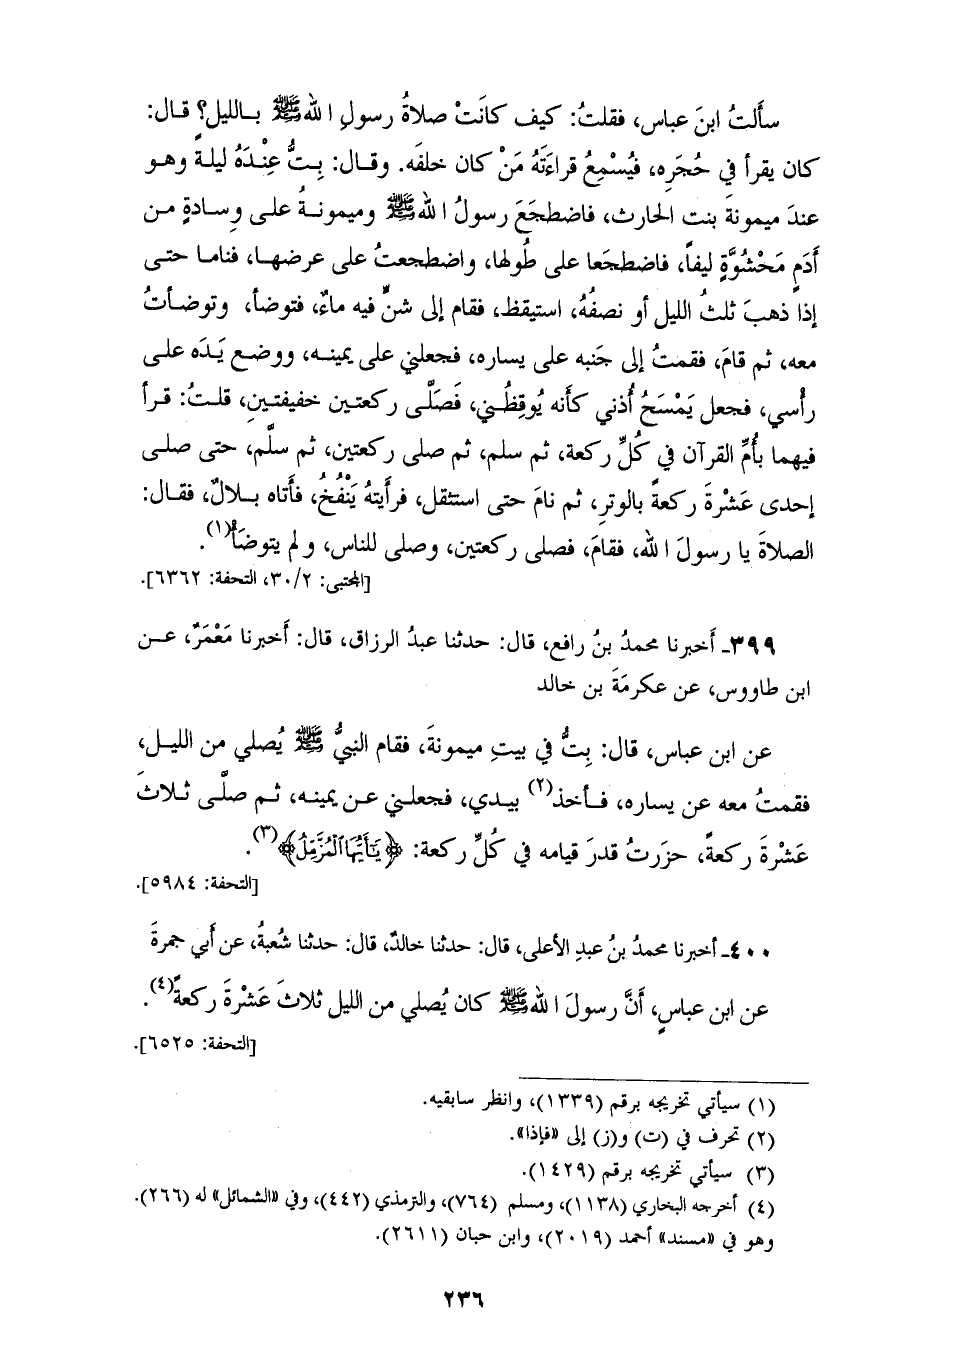 سأَلتُ ابنَ عباس، فقلتُ: كيف كانَتْ صلاةُ رسولِ الله ﷺ بالليل؟ قال:
كان يقرأ في حُجَرِه، فيُسْمِعُ قراءَتَهُ مَنْ كان خلفَه. وقال: بِتُّ عِنْدَهُ ليلةً وهو
عندَ ميمونةَ بنت الحارث، فاضطجَعَ رسولُ الله ﷺ وميمونةُ على وِسادةٍ من
أَدَمٍ مَحْشُوَّةٍ ليفاً، فاضطجَعا على طُولها، واضطجعتُ على عرضها، فناما حتى
إذا ذهبَ ثلثُ الليل أو نصفُهُ، استيقظ، فقام إلى شنٍّ فيه ماءٌ، فتوضأ، وتوضأتُ
معه، ثم قامَ، فقمتُ إلى جَنبه على يساره، فجعلني على يمينه، ووضع يَدَه على
رأسي، فجعل يَمْسَحُ أُذني كأَنه يُوقِظُني، فَصَلَّى ركعتين خفيفتينِ، قلتُ: قرأ
فيهما بأُمِّ القرآن في كُلِّ ركعة، ثم سلم، ثم صلى ركعتين، ثم سلَّم، حتى صلى
إحدى عَشْرةَ ركعةً بالوترِ، ثم نامَ حتى استثقل، فرأيتهُ يَنْفُخُ، فأتاه بلالٌ، فقال:
الصلاةَ يا رسولَ الله، فقامَ، فصلى ركعتين، وصلى للناس، ولم يتوضأْ(١).
[المجتبى: ٣٠/٢، التحفة: ٦٣٦٢].
٣٩٩ـ أَخبرنا محمدُ بنُ رافع، قال: حدثنا عبدُ الرزاق، قال: أَخبرنا مَعْمَرٌ، عن
ابن طاووس، عن عكرمَةَ بن خالد
عن ابن عباس، قال: بِتُّ في بيتِ ميمونةَ، فقام النبيُّ ﷺ يُصلي من الليل،
فقمتُ معه عن يساره، فأخذ(٢) بيدي، فجعلني عن يمينه، ثم صلَّى ثلاثَ
عَشْرةَ ركعةً، حزَرتُ قدرَ قيامه في كُلِّ ركعة: ﴿يَٰٓأَيُّهَا ٱلْمُزَّمِّلُ﴾(٣).
[التحفة: ٥٩٨٤].
٤٠٠ـ أخبرنا محمدُ بنُ عبدِ الأعلى، قال: حدثنا خالدٌ، قال: حدثنا شُعبةُ، عن أَبي جمرةَ
عن ابن عباسٍ، أَنَّ رسولَ الله ﷺ كان يُصلي من الليل ثلاثَ عَشْرةَ ركعةً(٤).
[التحفة: ٦٥٢٥].
(١) سيأتي تخريجه برقم (١٣٣٩)، وانظر سابقيه.
(٢) تحرف في (ت) و(ز) إلى «فإذا».
(٣) سيأتي تخريجه برقم (١٤٢٩).
(٤) أخرجه البخاري (١١٣٨)، ومسلم (٧٦٤)، والترمذي (٤٤٢)، وفي «الشمائل» له (٢٦٦).
وهو في «مسند» أحمد (٢٠١٩)، وابن حبان (٢٦١١).
٢٣٦